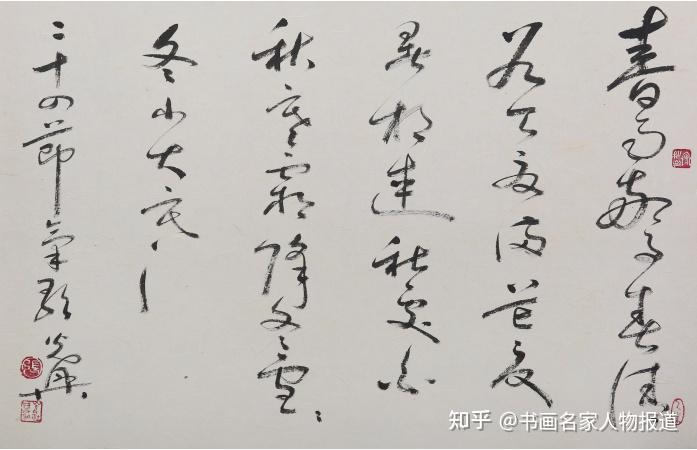 春雨驚春清
谷天夏满芒夏
暑相連秋處
秋寒霜降冬雪〻
冬小大寒
二十四節氣歌
知乎 @书画名家人物报道